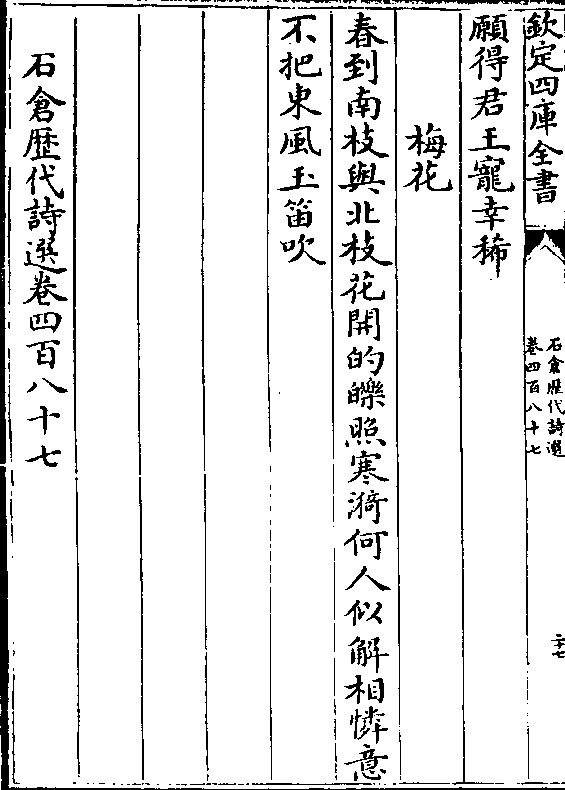 欽定四庫全書
石倉歷代詩選
卷四百八十七
二十七
願得君王寵幸稀
梅花
春到南枝與北枝花開的皪照寒漪何人似解相憐意
不把東風玉笛吹
石倉歷代詩選卷四百八十七